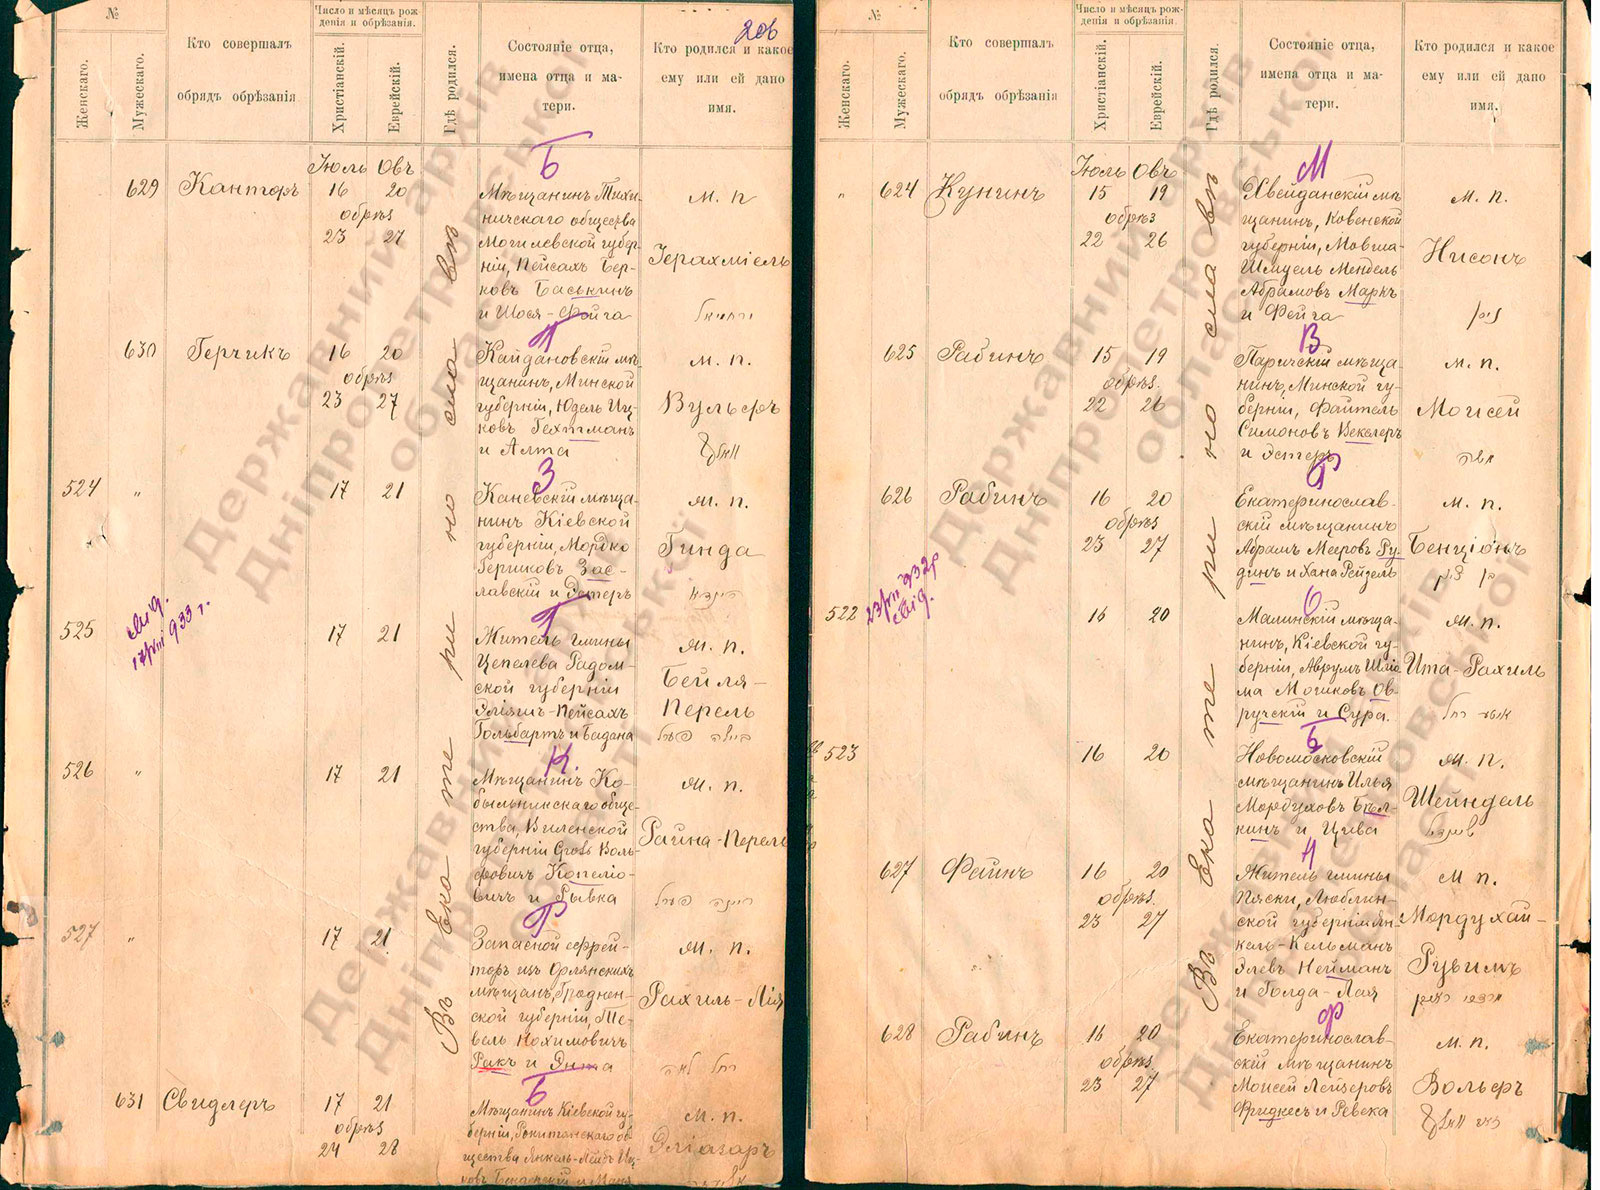 206
№
Женскаго.
Мужескаго.
Кто совершалъ
обрядъ обрѣзанія
Число и мѣсяцъ рож-
денія и обрѣзанія.
Христіанскій.
Еврейскій.
Гдѣ родился.
Состояніе отца,
имена отца и ма-
тери.
Кто родился и какое
ему или ей дано
имя.
Въ Екатеринославѣ
Б
Іюль Овъ
629 Канторъ 16 20
обрѣз
23 27
Мѣщанинъ Тихи-
ничскаго общества
Могилевской губер-
ніи, Пейсахъ Бер-
ковъ Баськинъ
и Шося-Фейга
м. п
Іерахміель
ירחמיאל
630 Герчикъ 16 20
обрѣз
23 27
Кайдановскій мѣ-
щанинъ, Минской
губерніи, Юдель Иц-
ковъ Гехтманъ
и Алта
м. п.
Вульфъ
וואלף
З
524 " 17 21
Каневскій мѣща-
нинъ Кіевской
губерніи, Мордко
Гершковъ Зас-
лавскій и Эстеръ
м. п.
Гинда
525 17 21
Житель гмины
Цепелева Радом-
ской губерніи
Эліяшъ-Пейсахъ
Гольбартъ и Бадана
м. п.
Бейля-
Перель
ביילה פערל
К.
526 " 17 21
Мѣщанинъ Ко-
быльникскаго обще-
ства, Виленской
губерніи
Вуль-
фовичъ Капеліо-
вичъ и Рывка
м. п.
Райна-Перель
ריינה פערל
Р
527 " 17 21
Запасной ефрей-
торъ изъ Орлянскихъ
мѣщанъ, Гроднен-
ской губерніи, Те-
вель Нохимовичъ
Ракъ и Энта
м. п.
Рахиль-Лія
רחל לאה
Б
631 Свидлеръ 17 21
обрѣз
24 28
Мѣщанинъ Кіевской гу-
берніи, Рокитянскаго об-
щества Янкель-Лейбъ Иц-
м. п.
Эліазаръ
№
Женскаго.
Мужескаго.
Кто совершалъ
обрядъ обрѣзанія
Число и мѣсяцъ рож-
денія и обрѣзанія.
Христіанскій.
Еврейскій.
Гдѣ родился.
Состояніе отца,
имена отца и ма-
тери.
Кто родился и какое
ему или ей дано
имя.
Въ Екатеринославѣ
М
Іюль Овъ
" 624 Кунинъ 15 19
обрѣз
22 26
Хвейданскій мѣ-
щанинъ, Ковенской
губерніи, Мовша-
Шмуель Мендель
Абрамовъ Маркъ
и Фейга
м. п.
Нисонъ
ניסן
В
625 Рабинъ 15 19
обрѣз.
22 26
Паричскій мѣща-
нинъ, Минской гу-
берніи, Файтель
Симоновъ Векслеръ
и Эстеръ
м. п.
Моисей
משה
Р
626 Рабинъ 16 20
обрѣз
23 27
Екатеринослав-
скій мѣщанинъ
Абрамъ Мееровъ Ру-
динъ и Хана Рейзель
м. п.
Бенціонъ
בן ציון
О
522 16 20
Малинскій мѣща-
нинъ, Кіевской гу-
берніи, Аврумъ Шлио-
ма Мошковъ Ов-
ручскій и Сура.
м. п.
Ита-Рахиль
איטע רחל
Б
523 16 20
Новомосковскій
мѣщанинъ Илья
Мордуховъ Бѣл-
кинъ и Цива
м. п.
Шейндель
שיינדל
Н
627 Фейнъ 16 20
обрѣз.
23 27
Житель гмины
Пяски, Люблин-
ской губерніи Ян-
кель-Кельманъ
Элевъ Нейманъ
и Голда-Лая
м п.
Мордухай-
Рувимъ
מרדכי ראובן
Ф
628 Рабинъ 16 20
обрѣз.
23 27
Екатеринослав-
скій мѣщанинъ
Моисей Лейзеровъ
Фридкесъ и Ревека
м. п.
Вольфъ
Державний архів
Дніпропетровської
області